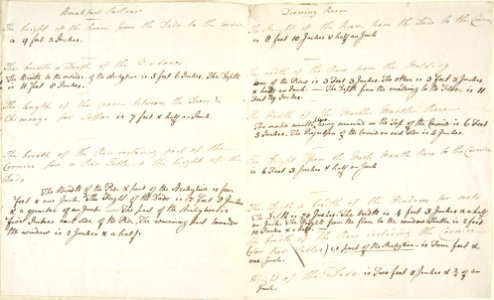 Breakfast Parlour
The height of the Room from the Dado to the Cornice
is 9 feet 3 Inches.
The breadth & Depth of the Windows
The Width to the outside of the Architrave is 5 feet 6 Inches. The Depth
is 11 feet 8 Inches.
The height of the pier between the Doors &
Chimney for Sophas is 7 feet & half an Inch
The breadth of the Pier including part of the
Cornice for a Pier Table & the height of the
Dado
The Width of the Pier & part of the Architrave is four
feet & one Inch. The Height of the Dado is 2 feet 8 Inches
& a quarter of an Inch. The part of the Architrave is
four Inches each side of the Pier. The remaining part towards
the window is 2 Inches & a half.
Drawing Room
The Height of the Room from the Dado to the Cornice
is 8 feet 10 Inches & half an Inch
The width of the Piers from the Molding
one of the Piers is 3 Feet 3 Inches. The other is 3 Feet 3 Inches
& half an Inch. The Depth from the moulding to the Floor is 11
Feet Inches.
The Width of the Marble Mantle Piece
The marble mantle piece being measured on the Top of the Cornice is 6 Feet
3 Inches. The Projection of the Cornice on each side is 6 Inches.
The Height from the Marble Mantle Piece to the Cornice
is 6 Feet 3 Inches & half an Inch
The Depth & breadth of the Windows
The Depth is 10 Inches. The breadth is 4 feet 3 Inches & a half
The Height from the floor to the window is 2 feet
10 Inches & a half.
The breadth of the Piers including the Cornice
(for Pier Tables) & part of the Architrave, is Four feet &
one Inch.
Height of the Dado is Two feet 8 Inches & 3/4 of an
Inch.